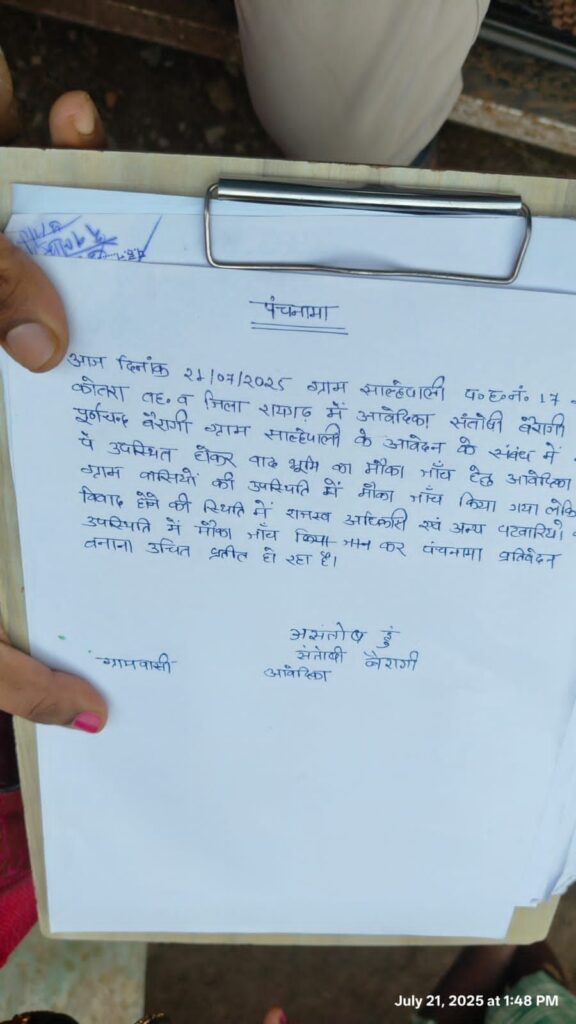 पंचनामा
आज दिनांक 21/07/2025 ग्राम साल्हेपाली प.ह.नं. 17
कोतरा तह. व जिला रायगढ़ में आवेदिका संतोषी बैरागी
पूर्णचन्द बैरागी ग्राम साल्हेपाली के आवेदन के संबंध में
पे उपस्थित होकर वाद भूमि का मौका जाँच हेतु आवेदिका
ग्राम वासियों की उपस्थिति में मौका जाँच किया गया लेकि
विवाद होने की स्थिति में राजस्व अधिकारी एवं अन्य पटवारियों
उपस्थिति में मौका जाँच किया जान कर पंचनामा प्रतिवेदन
बनाना उचित प्रतीत हो रहा है।
असंतोष हुं
संतोषी बैरागी
ग्रामवासी
आवेदिका
July 21, 2025 at 1:48 PM